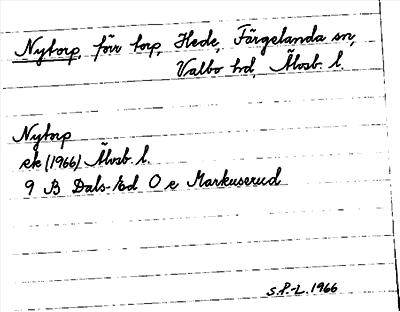 Nytorp, förr torp, Hede, Färgelanda sn,
Valbo hd, Älvsb. l.
Nytorp
ek (1966) Älvsb. l.
9 B Dals-Ed 0 e Markuserud
S.P.-L. 1966